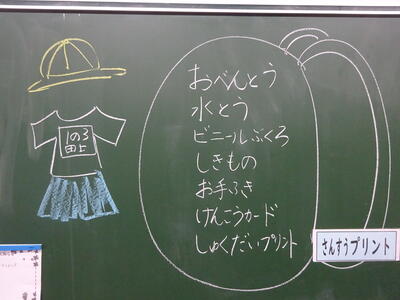 1の3
田上
おべんとう
水とう
ビニールぶくろ
しきもの
お手ふき
けんこうカード
しゅくだいプリント
さんすうプリント